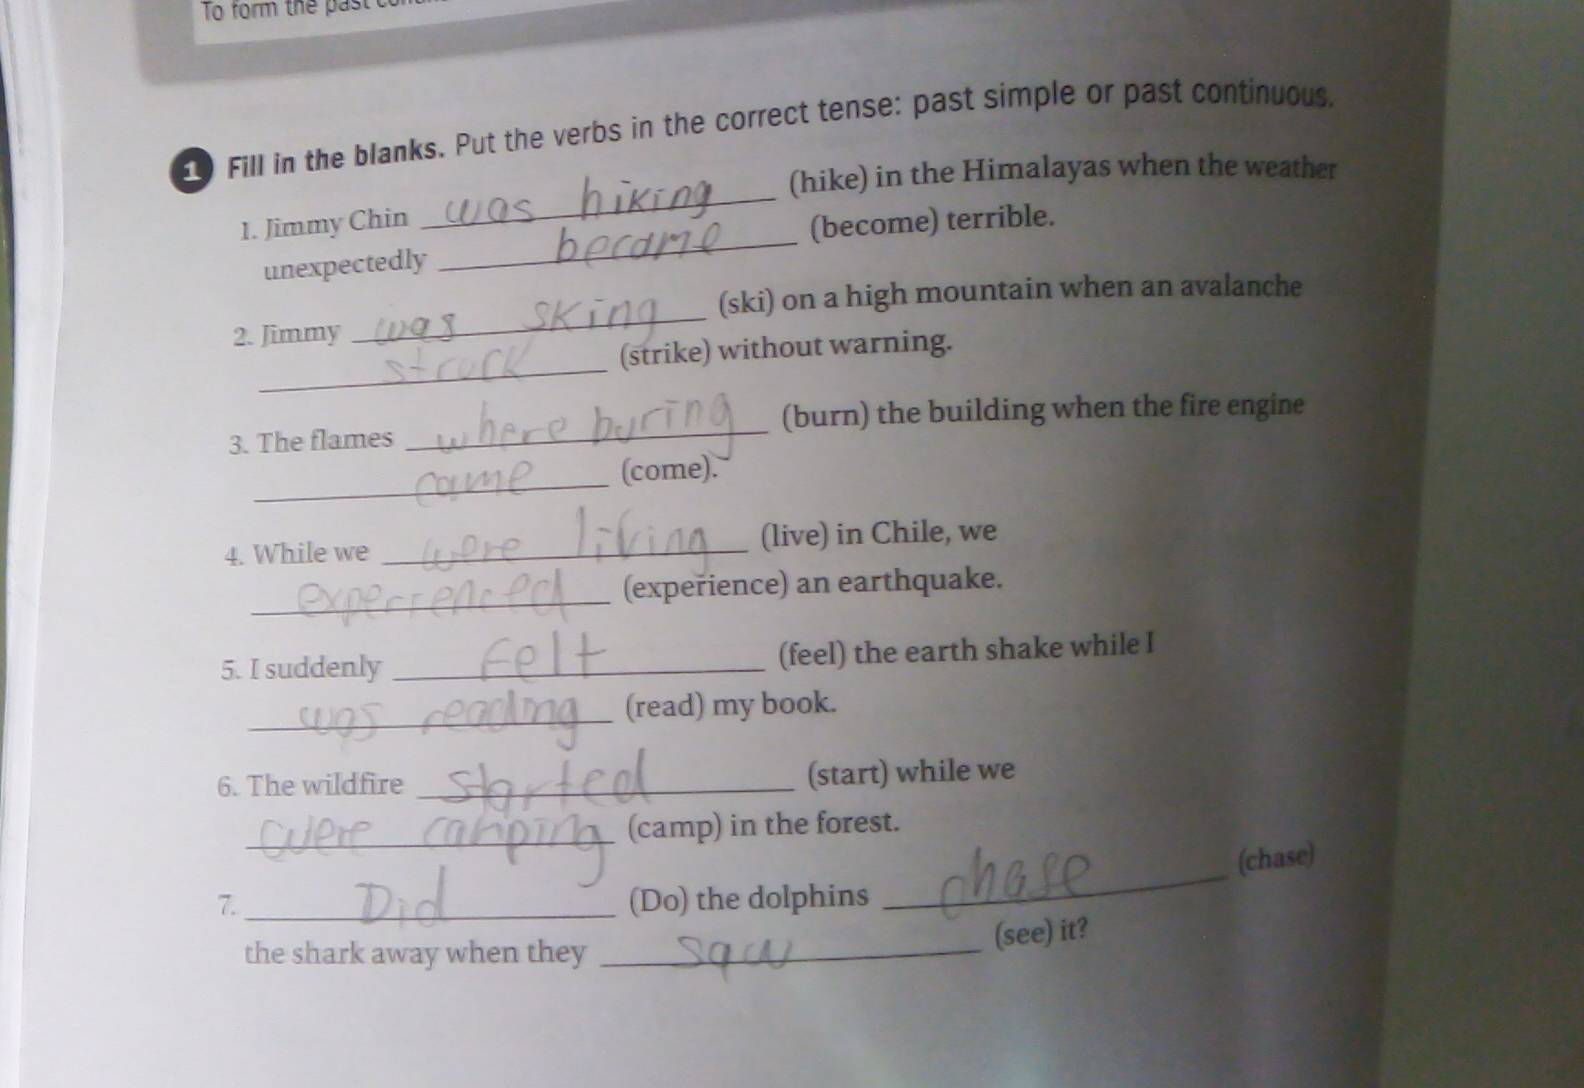 To form the past
1 Fill in the blanks. Put the verbs in the correct tense: past simple or past continuous.
1. Jimmy Chin was hiking (hike) in the Himalayas when the weather
unexpectedly became (become) terrible.
2. Jimmy was sking (ski) on a high mountain when an avalanche
struck (strike) without warning.
3. The flames where buring (burn) the building when the fire engine
came (come).
4. While we were living (live) in Chile, we
experienced (experience) an earthquake.
5. I suddenly Felt (feel) the earth shake while I
was reading (read) my book.
6. The wildfire started (start) while we
were camping (camp) in the forest.
7. Did (Do) the dolphins chase (chase)
the shark away when they saw (see) it?